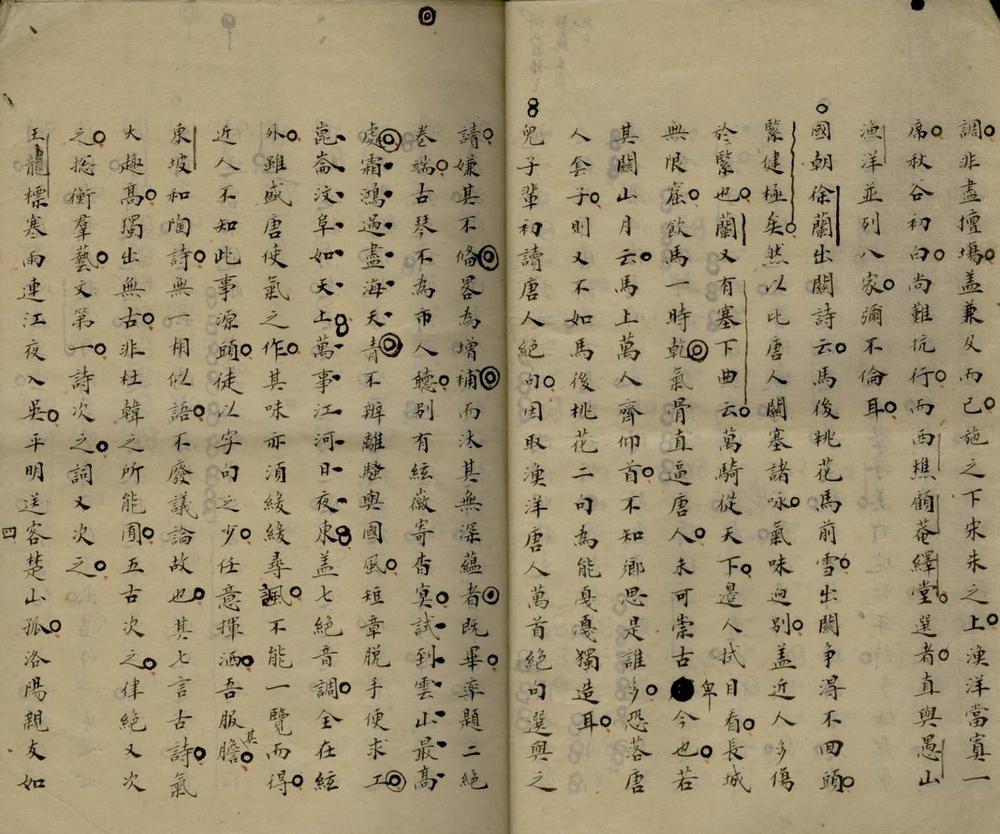 調非盡擅場蓋兼及而已施之下宋朱之上漁洋當寘一
席秋谷初白尚難抗行而西樵顧菴繹堂選者直與愚山
漁洋並列八家彌不倫耳
國朝徐蘭出關詩云馬後桃花馬前雪出關爭淂不回頭
緊健極矣然以比唐人關塞諸咏氣味迥别盖近人多傷
於緊也蘭又有塞下曲云萬騎從天下邊人拭目看長城
無恨窟飲馬一時乾氣骨直逼唐人未可崇古卑今也若
其關山月云馬上萬人齊仰首不知鄉思是誰多恐落唐
人套子則又不如馬後桃花二句為能戛戛獨造耳
兒子輩初讀唐人絕句因取漁洋唐人萬首絕句選與之
請嫌其不備畧為增補而汰其無深蘊者既畢率題二絕
卷端古琴不為市人聽别有絃徽寄杳冥試到雲山最高
處霜鴻過盡海天青不辨離騷與國風短章脱手便求工
崑崙汶阜如天上萬事江河日夜東盖七絕音調全在絃
外雖盛唐使氣之作其味亦湏緩緩尋諷不能一覽而得
近人不知此事源頭徒以字句之少任意揮洒吾服其膽
東坡和陶詩無一相似語不廢議論故也其七言古詩氣
大趣高獨出無古非杜韓之所能圍五古次之律絕又次
之揔衡羣藝文第一詩次之詞又次之
王龍標寒雨連江夜入吳平明送客楚山孤洛陽親友如
四